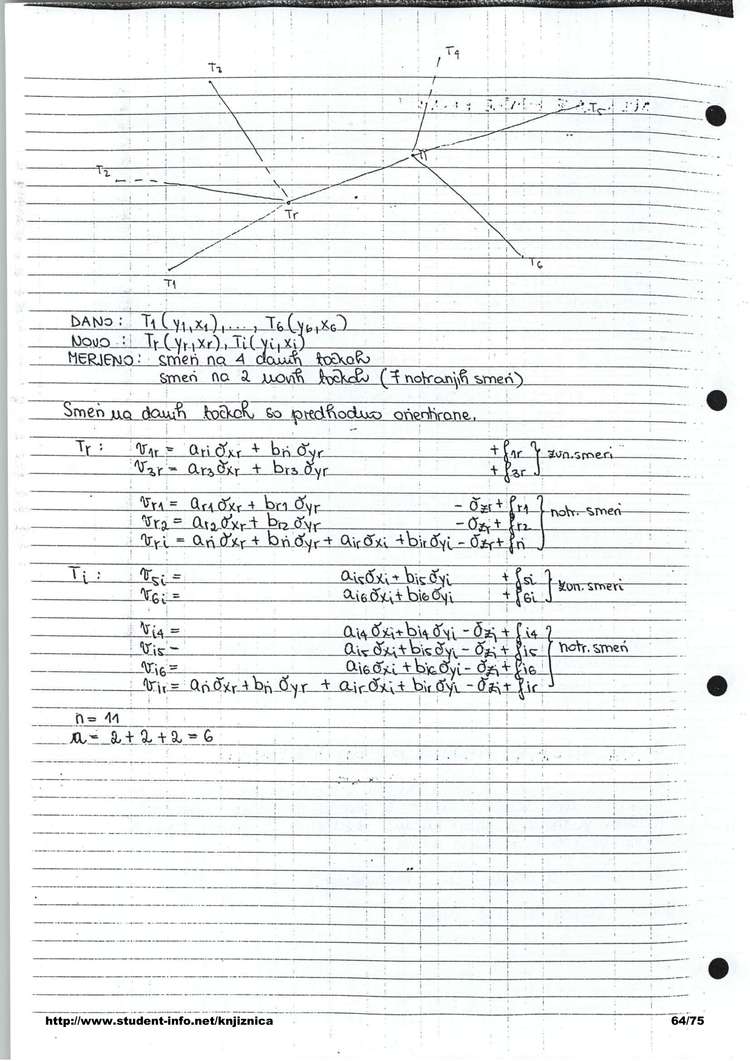 T3
T4
T5
T2
Ti
Tr
T6
T1
DANO: T1(y1,x1),..., T6(y6,x6)
NOVO: Tr(yr,xr), Ti(yi,xi)
MERJENO: smeri na 4 danih točkah
smeri na 2 novih točkah (7 notranjih smeri)
Smeri na danih točkah so predhodno orientirane.
Tr: v1r = ar1 δxr + br1 δyr + f1r } zun. smeri
v3r = ar3 δxr + br3 δyr + f3r
vr1 = ar1 δxr + br1 δyr - δzr + fr1 } notr. smeri
vr2 = ar2 δxr + br2 δyr - δzr + fr2
vri = ari δxr + bri δyr + air δxi + bir δyi - δzr + fri
Ti: v5i = ai5 δxi + bi5 δyi + f5i } zun. smeri
v6i = ai6 δxi + bi6 δyi + f6i
vi4 = ai4 δxi + bi4 δyi - δzi + fi4 } notr. smeri
vi5 = ai5 δxi + bi5 δyi - δzi + fi5
vi6 = ai6 δxi + bi6 δyi - δzi + fi6
vir = ari δxr + bri δyr + air δxi + bir δyi - δzi + fir
n = 11
u = 2 + 2 + 2 = 6
http://www.student-info.net/knjiznica 64/75